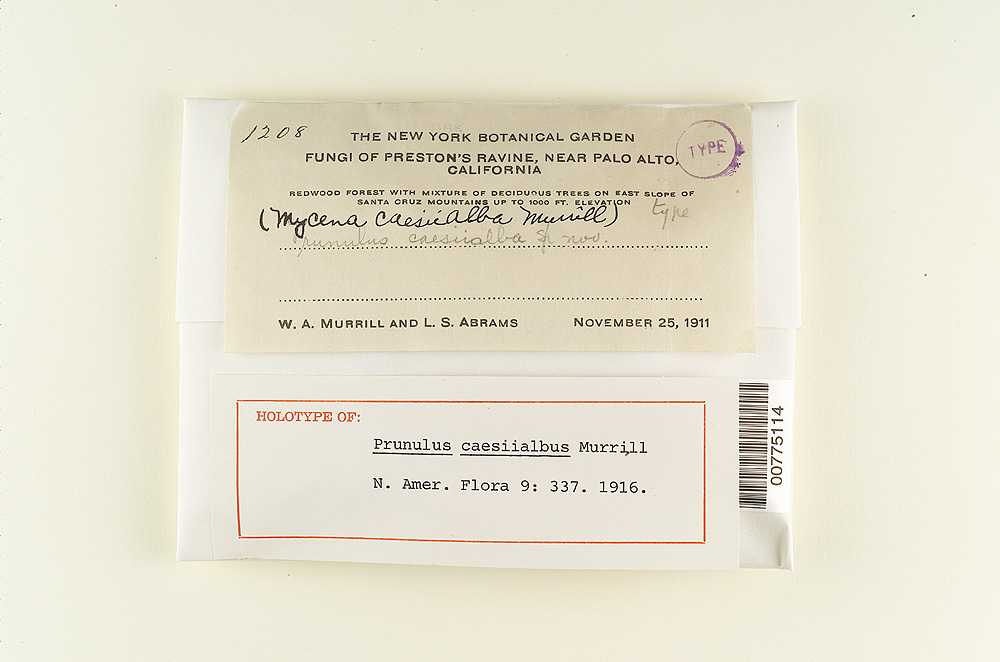 1208
THE NEW YORK BOTANICAL GARDEN
TYPE
FUNGI OF PRESTON'S RAVINE, NEAR PALO ALTO,
CALIFORNIA
REDWOOD FOREST WITH MIXTURE OF DECIDUOUS TREES ON EAST SLOPE OF
SANTA CRUZ MOUNTAINS UP TO 1000 FT. ELEVATION
(Mycena caesiialba Murrill) type
Prunulus caesiialba sp nov.
W. A. MURRILL AND L. S. ABRAMS NOVEMBER 25, 1911
HOLOTYPE OF:
Prunulus caesiialbus Murrill
N. Amer. Flora 9: 337. 1916.
00775114